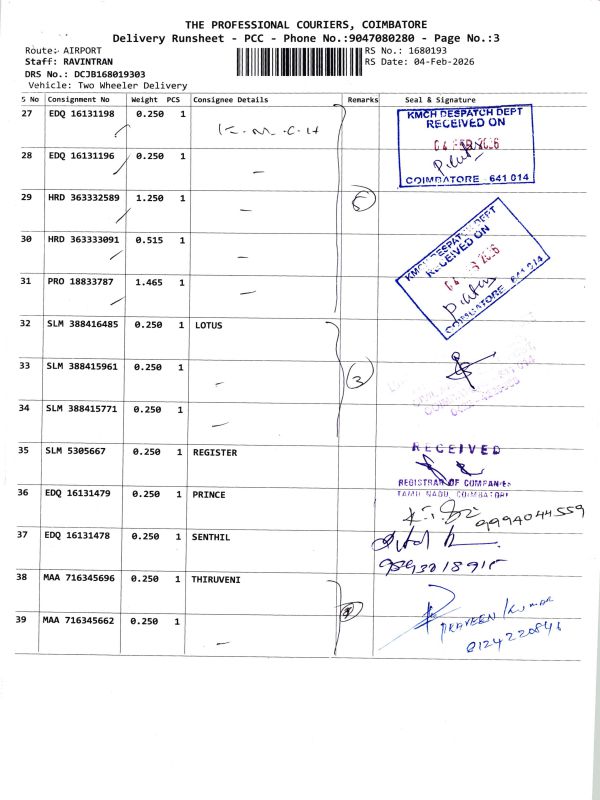 THE PROFESSIONAL COURIERS, COIMBATORE
Delivery Runsheet - PCC - Phone No.:9047080280 - Page No.:3
Route: AIRPORT
RS No.: 1680193
Staff: RAVINTRAN
RS Date: 04-Feb-2026
DRS No.: DCJB168019303
Vehicle: Two Wheeler Delivery
S No Consignment No Weight PCS Consignee Details Remarks Seal & Signature
27 EDQ 16131198 0.250 1 K.M.C.H
KMCH DESPATCH DEPT
RECEIVED ON
04 FEB 2026
COIMBATORE - 641 014
28 EDQ 16131196 0.250 1 —
29 HRD 363332589 1.250 1 — 5
30 HRD 363333091 0.515 1 —
KMCH DESPATCH DEPT
RECEIVED ON
COIMBATORE - 641 014
31 PRO 18833787 1.465 1 —
32 SLM 388416485 0.250 1 LOTUS
33 SLM 388415961 0.250 1 — 3
34 SLM 388415771 0.250 1 —
35 SLM 5305667 0.250 1 REGISTER
RECEIVED
REGISTRAR OF COMPANIES
TAMIL NADU, COIMBATORE
36 EDQ 16131479 0.250 1 PRINCE
9994044559
37 EDQ 16131478 0.250 1 SENTHIL
38 MAA 716345696 0.250 1 THIRUVENI
PRAVEEN KUMAR
8124220846
39 MAA 716345662 0.250 1 —